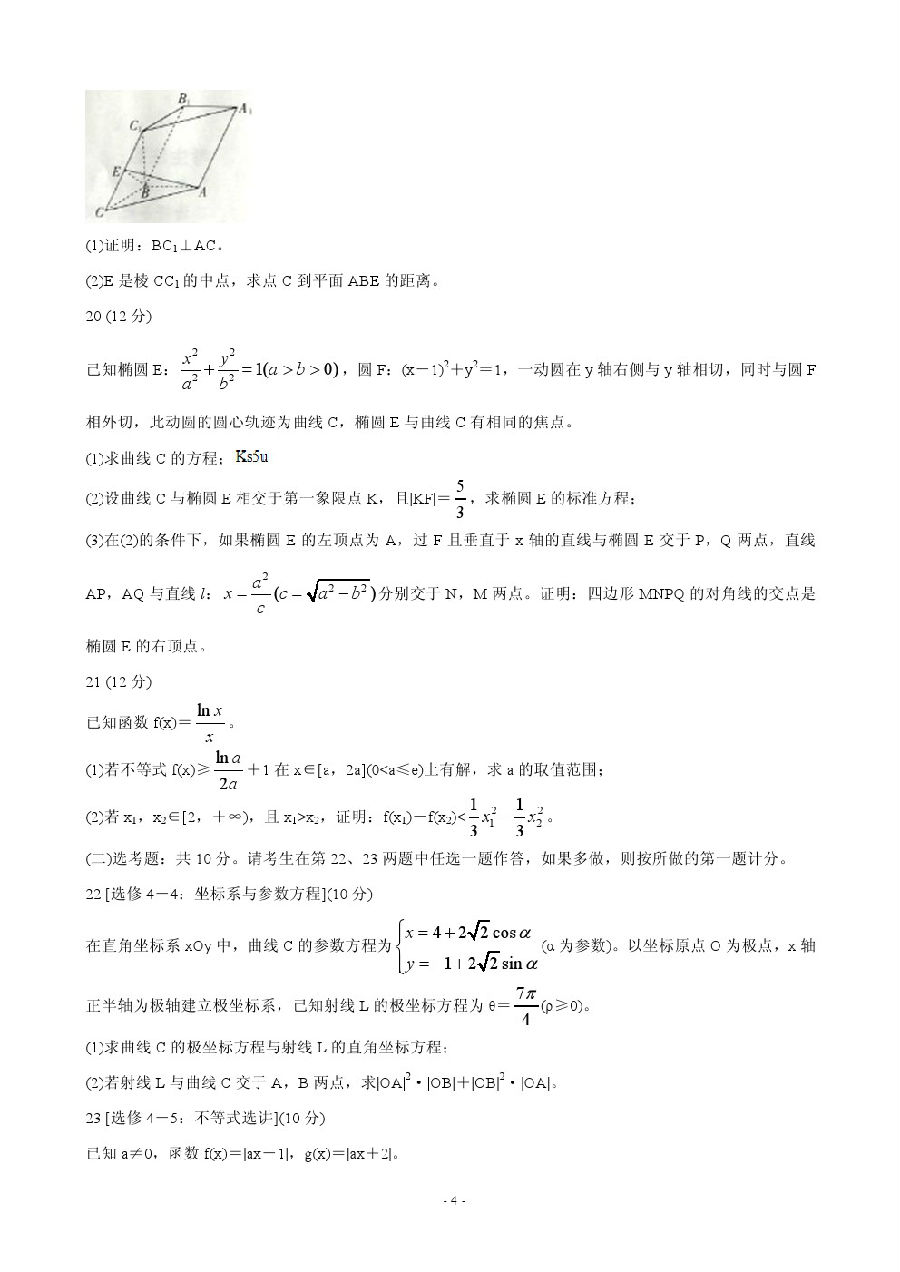 B₁
A₁
C₁
E
B
A
C
(1)证明：BC₁⊥AC。
(2)E 是棱 CC₁的中点，求点 C 到平面 ABE 的距离。
20 (12 分)
已知椭圆 E：x²/a²＋y²/b²＝1(a＞b＞0)，圆 F：(x－1)²＋y²＝1，一动圆在 y 轴右侧与 y 轴相切，同时与圆 F
相外切，此动圆的圆心轨迹为曲线 C，椭圆 E 与曲线 C 有相同的焦点。
(1)求曲线 C 的方程；Ks5u
(2)设曲线 C 与椭圆 E 相交于第一象限点 K，且|KF|＝5/3，求椭圆 E 的标准方程；
(3)在(2)的条件下，如果椭圆 E 的左顶点为 A，过 F 且垂直于 x 轴的直线与椭圆 E 交于 P，Q 两点，直线
AP，AQ 与直线 l：x＝a²/c(c＝√(a²－b²))分别交于 N，M 两点。证明：四边形 MNPQ 的对角线的交点是
椭圆 E 的右顶点。
21 (12 分)
已知函数 f(x)＝ln x/x。
(1)若不等式 f(x)≥ln a/2a＋1 在 x∈[a，2a](0<a≤e)上有解，求 a 的取值范围；
(2)若 x₁，x₂∈[2，＋∞)，且 x₁>x₂，证明：f(x₁)－f(x₂)<1/3x₁² 1/3x₂²。
(二)选考题：共 10 分。请考生在第 22、23 两题中任选一题作答，如果多做，则按所做的第一题计分。
22 [选修 4－4：坐标系与参数方程](10 分)
在直角坐标系 xOy 中，曲线 C 的参数方程为{x＝4＋2√2cosα y＝ 1＋2√2sinα (α 为参数)。以坐标原点 O 为极点，x 轴
正半轴为极轴建立极坐标系，已知射线 L 的极坐标方程为 θ＝7π/4(ρ≥0)。
(1)求曲线 C 的极坐标方程与射线 L 的直角坐标方程；
(2)若射线 L 与曲线 C 交于 A，B 两点，求|OA|²·|OB|＋|CB|²·|OA|。
23 [选修 4－5：不等式选讲](10 分)
已知 a≠0，函数 f(x)＝|ax－1|，g(x)＝|ax＋2|。
- 4 -